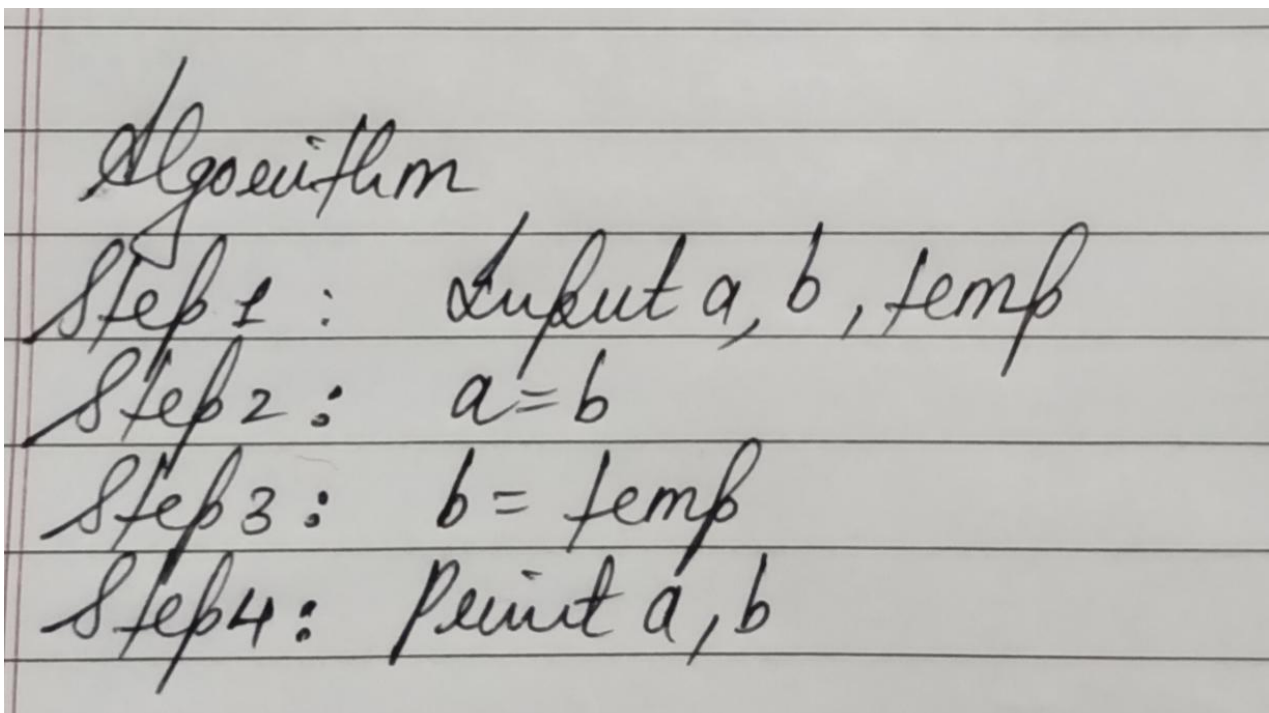 Algorithm
Step 1 : Input a, b, temp
Step 2 : a = b
Step 3 : b = temp
Step 4 : Print a, b